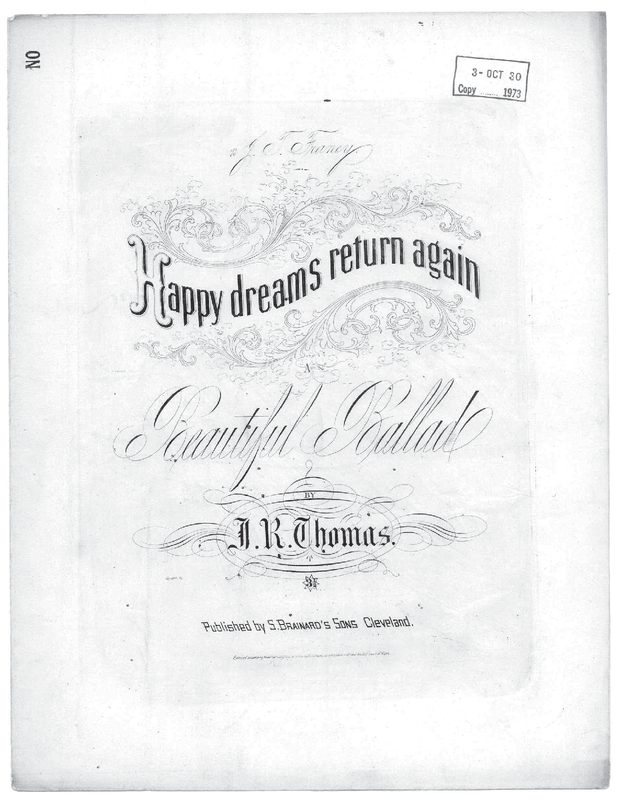 NO
3 - OCT 30
Copy ........ 1973
J. F.
Happy dreams return again
A
Beautiful Ballad
BY
J. R. Thomas.
3½
Published by S. Brainard's Sons Cleveland.